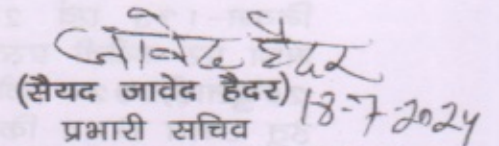 जावेद हैदर
(सैयद जावेद हैदर) 18-7-2024
प्रभारी सचिव